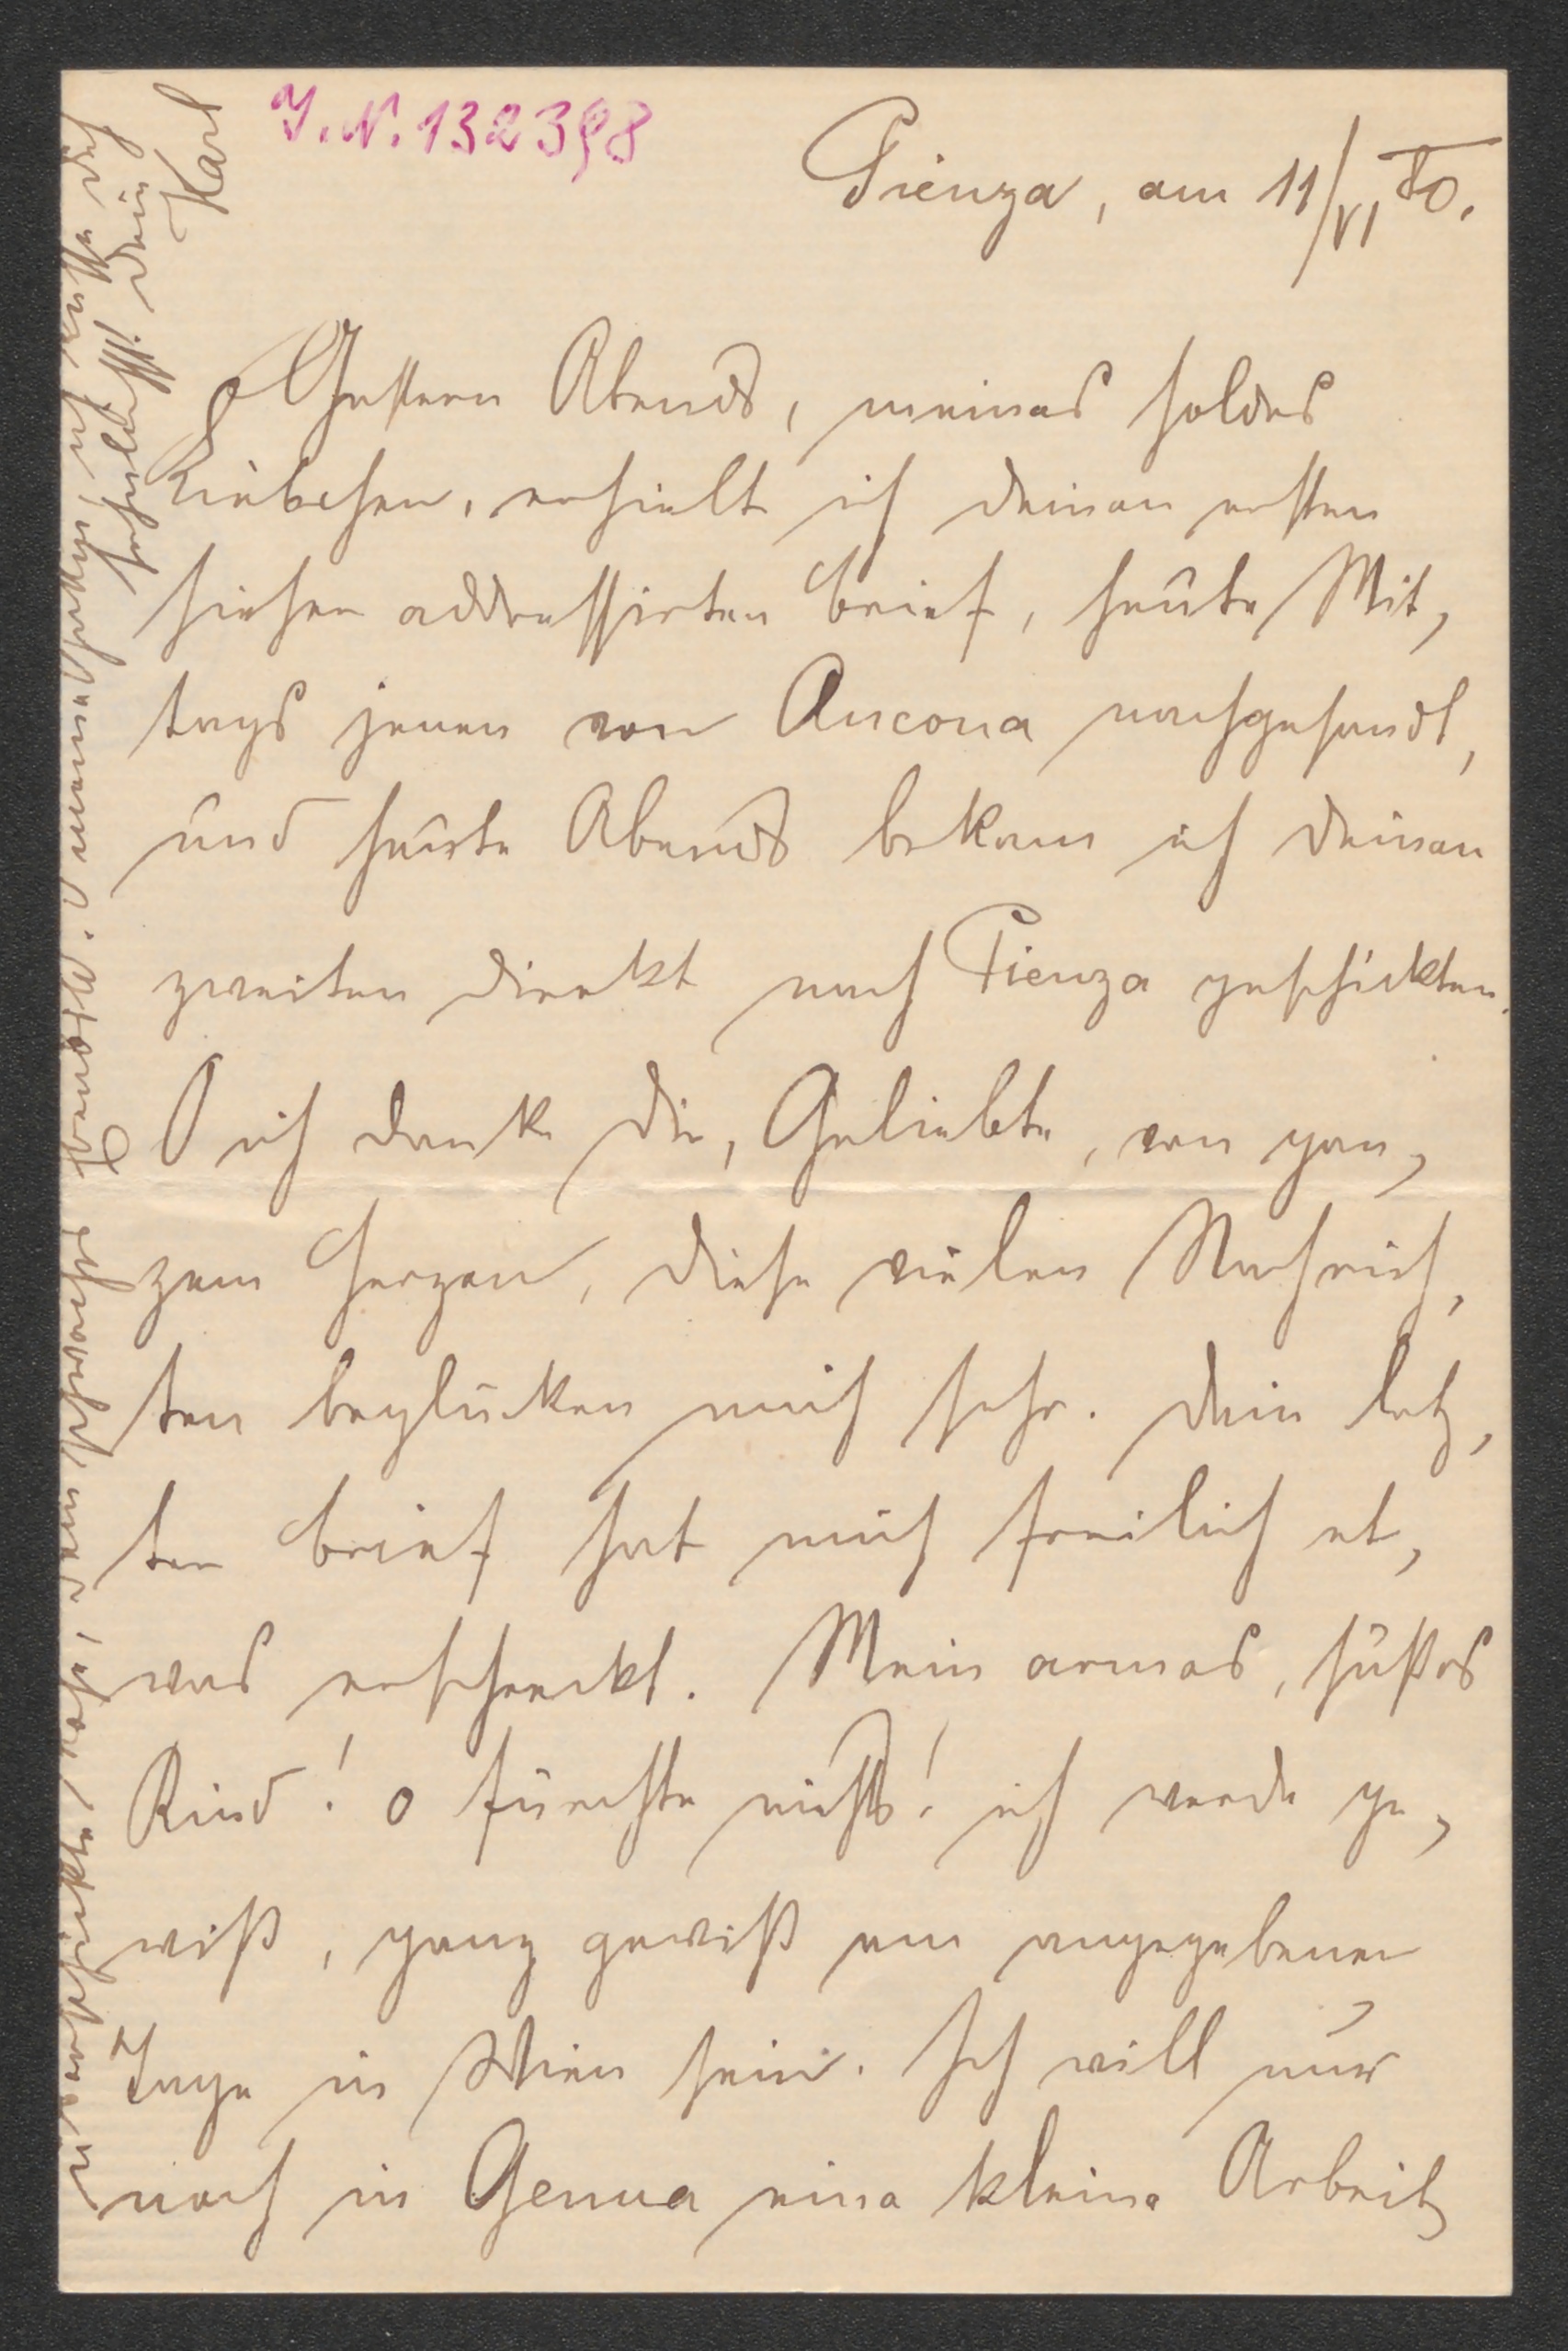 J. N. 132398
Pienza, am 11/VI 80.
Gestern Abends, meines holdes
Liebchen, erhielt ich deinen ersten
hieher addressirten Brief, heute Mit,
tags jenen von Ancona nachgesandt,
und heute Abends bekam ich deinen
zweiten direkt nach Pienza geschickten.
O ich danke dir, Geliebte, von gan,
zem Herzen, diese vielen Nachrich,
ten beglücken mich sehr. Dein letz,
ter Brief hat mich freilich et,
was erschreckt. Mein armes, süßes
Kind! o fürchte nichts! ich werde ge,
wiß, ganz gewiß am angegebenen
Tage in Wien sein. Ich will nur
noch in Genua eine kleine Arbeit
dein
Karl